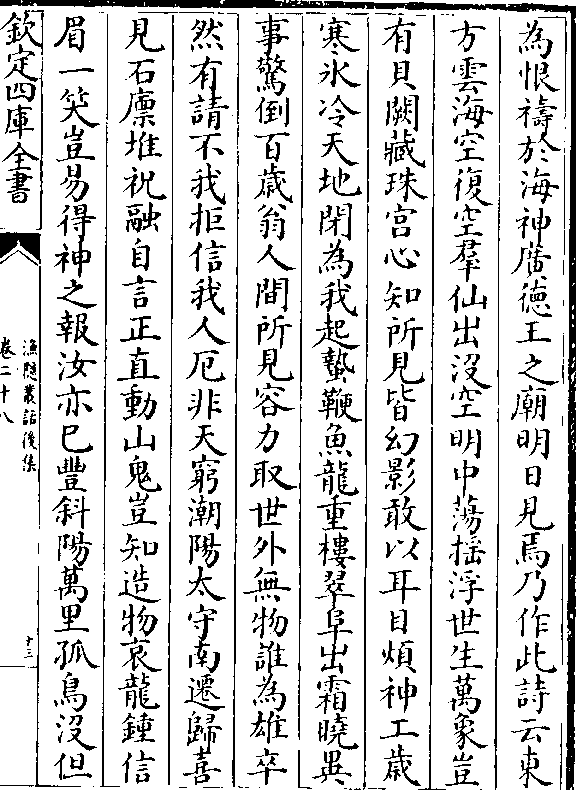 為恨禱於海神廣徳王之廟明日見焉乃作此詩云東
方雲海空復空羣仙出没空明中蕩揺浮世生萬象豈
有貝闕藏珠宫心知所見皆幻影敢以耳目煩神工歳
寒氷冷天地閉為我起蟄鞭魚龍重樓翠阜出霜曉異
事驚倒百歳翁人間所見容力取世外無物誰為雄卒
然有請不我拒信我人厄非天窮潮陽太守南遷歸喜
見石廪堆祝融自言正直動山鬼豈知造物哀龍鍾信
眉一笑豈易得神之報汝亦已豐斜陽萬里孤鳥没但
欽定四庫全書
漁隠叢話後集
卷二十八
十三